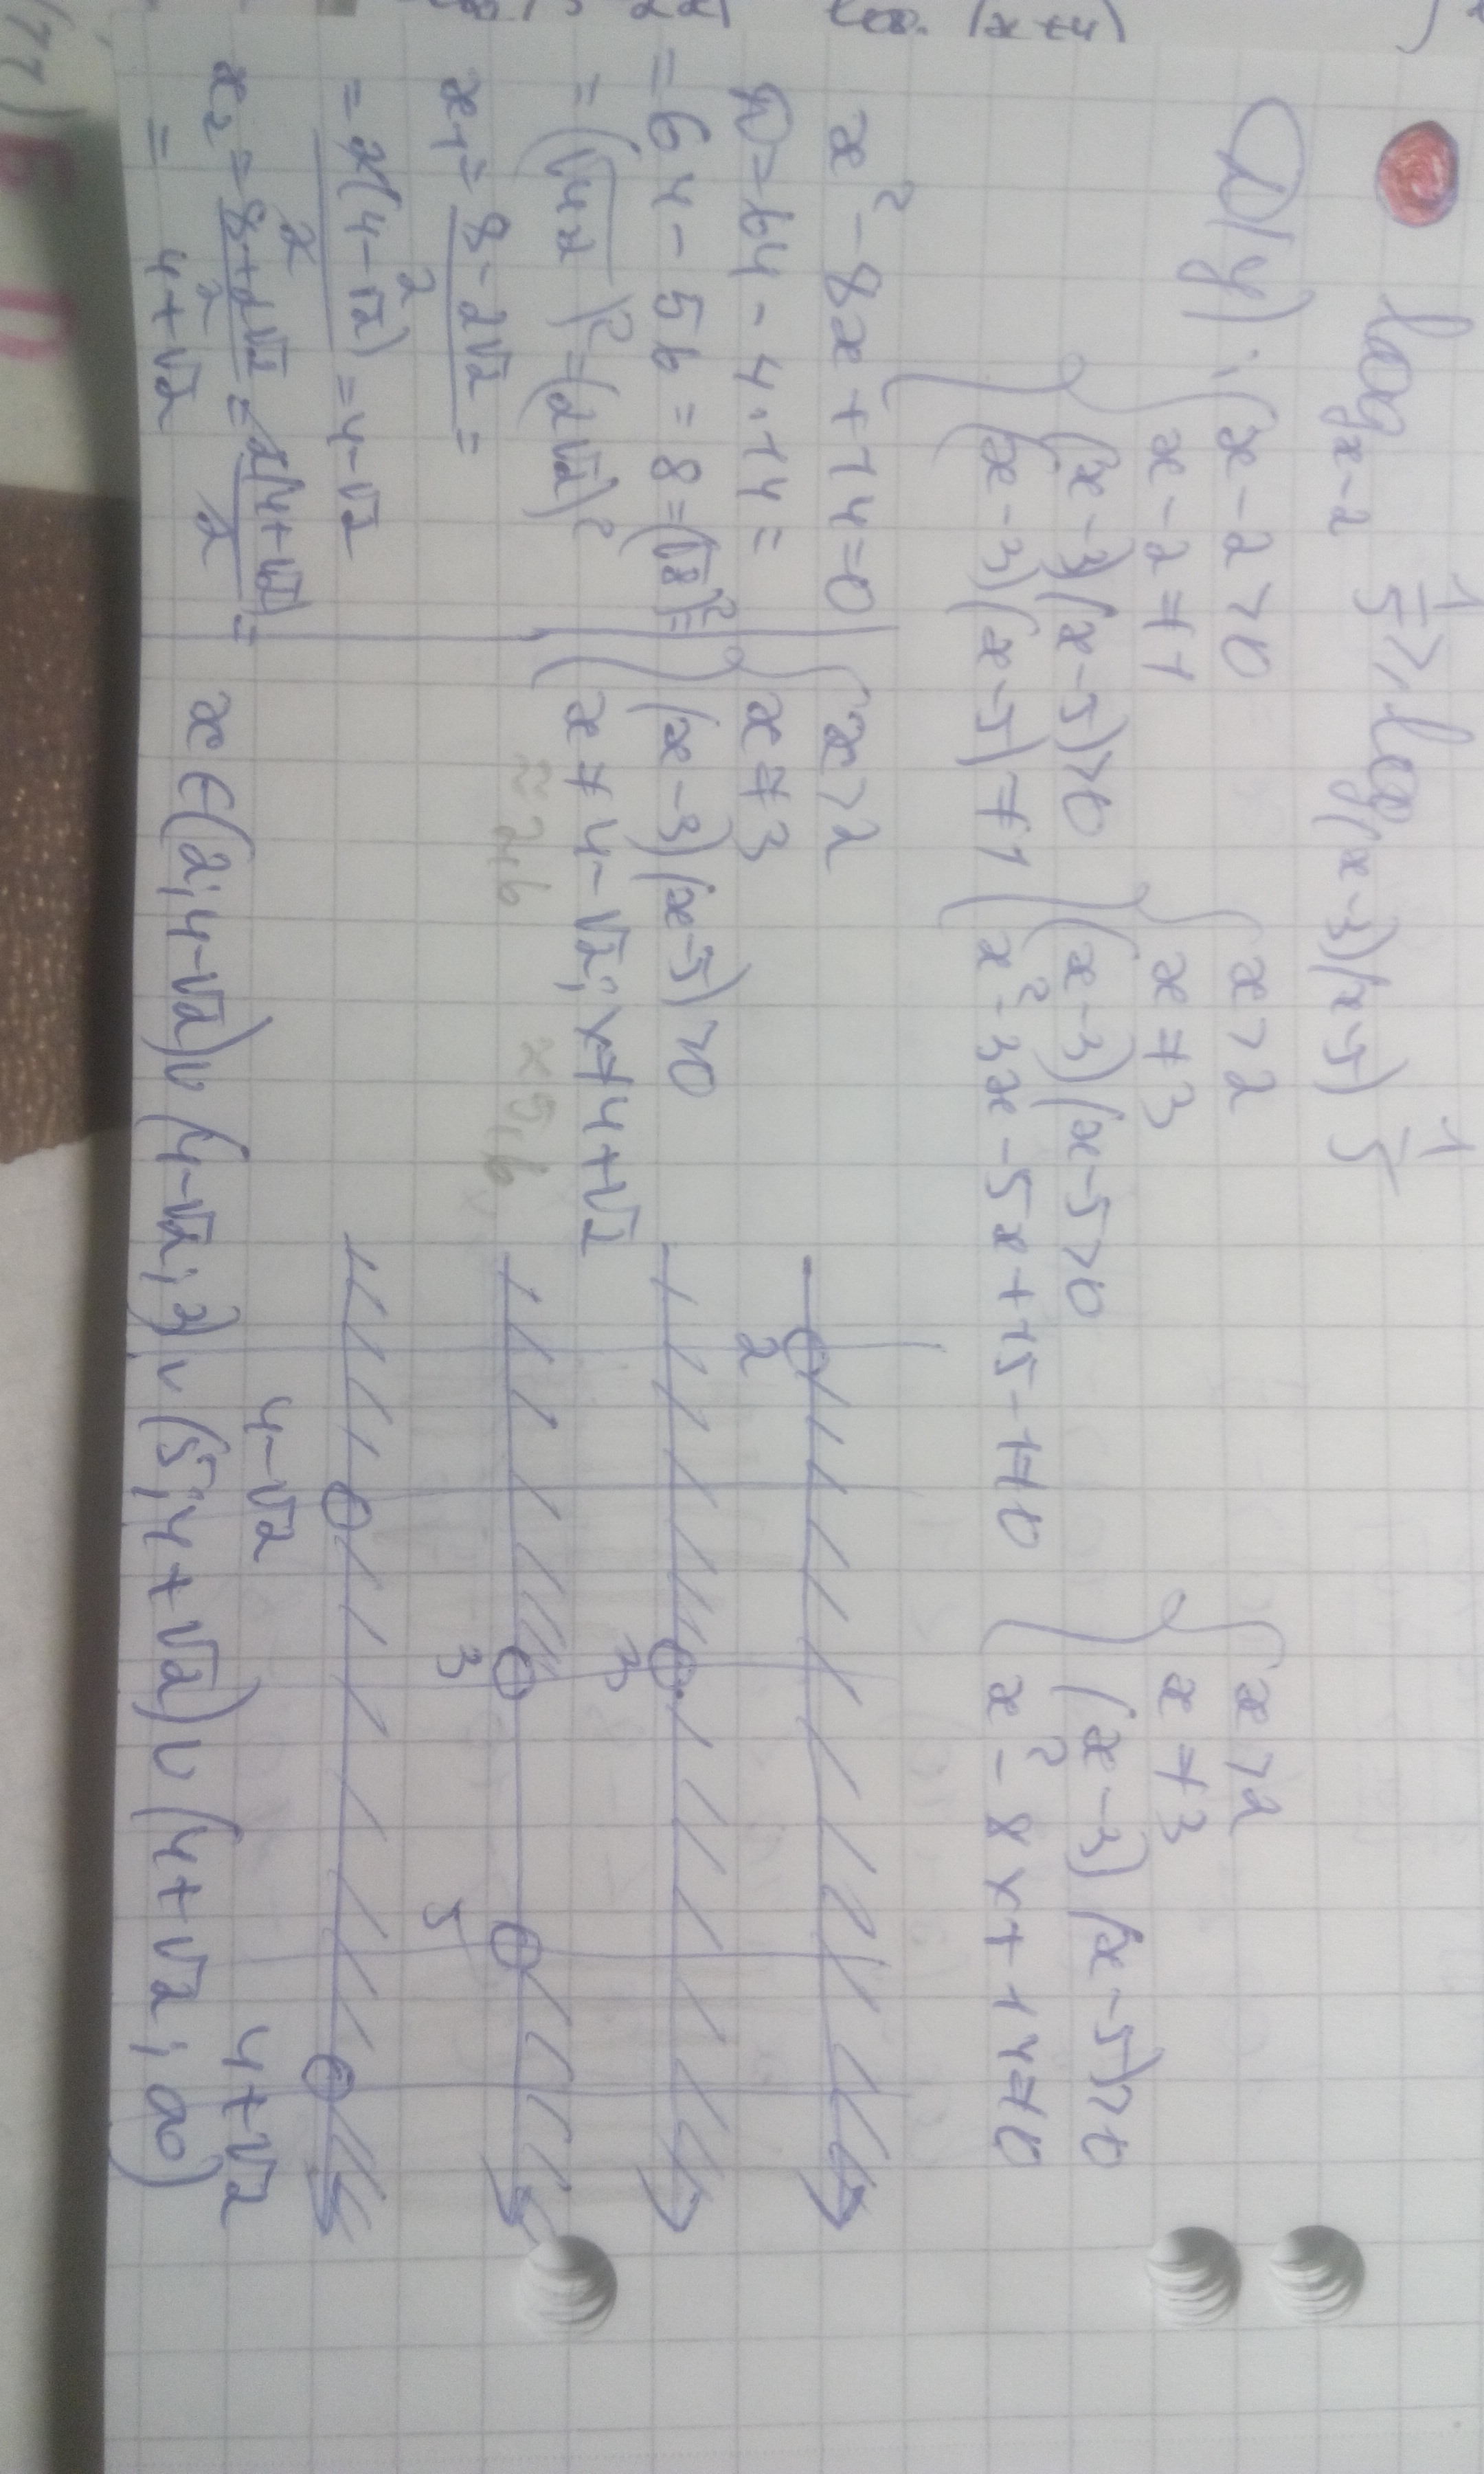 log_{x-2} 1/5 ≥ log_{(x-3)(x-5)} 1/5
D(y): { x-2>0 { x>2 { x>2
x-2≠1 x≠3 x≠3
(x-3)(x-5)>0 (x-3)(x-5>0 (x-3)(x-5)>0
(x-3)(x-5)≠1 x²-3x-5x+15-1≠0 x²-8x+14≠0
x²-8x+14=0
D=64-4·14=
=64-56=8=(√8)²=
=(√4·2)²=(2√2)²
x₁=(8-2√2)/2=
=2(4-√2)/2=4-√2
x₂=(8+2√2)/2=2(4+√2)/2=
=4+√2
{ x>2
x≠3
(x-3)(x-5)>0
x≠4-√2; x≠4+√2
≈2,6 ≈5,6
2
3
3 5
4-√2 4+√2
x∈(2;4-√2)∪(4-√2;3)∪(5;4+√2)∪(4+√2;∞)